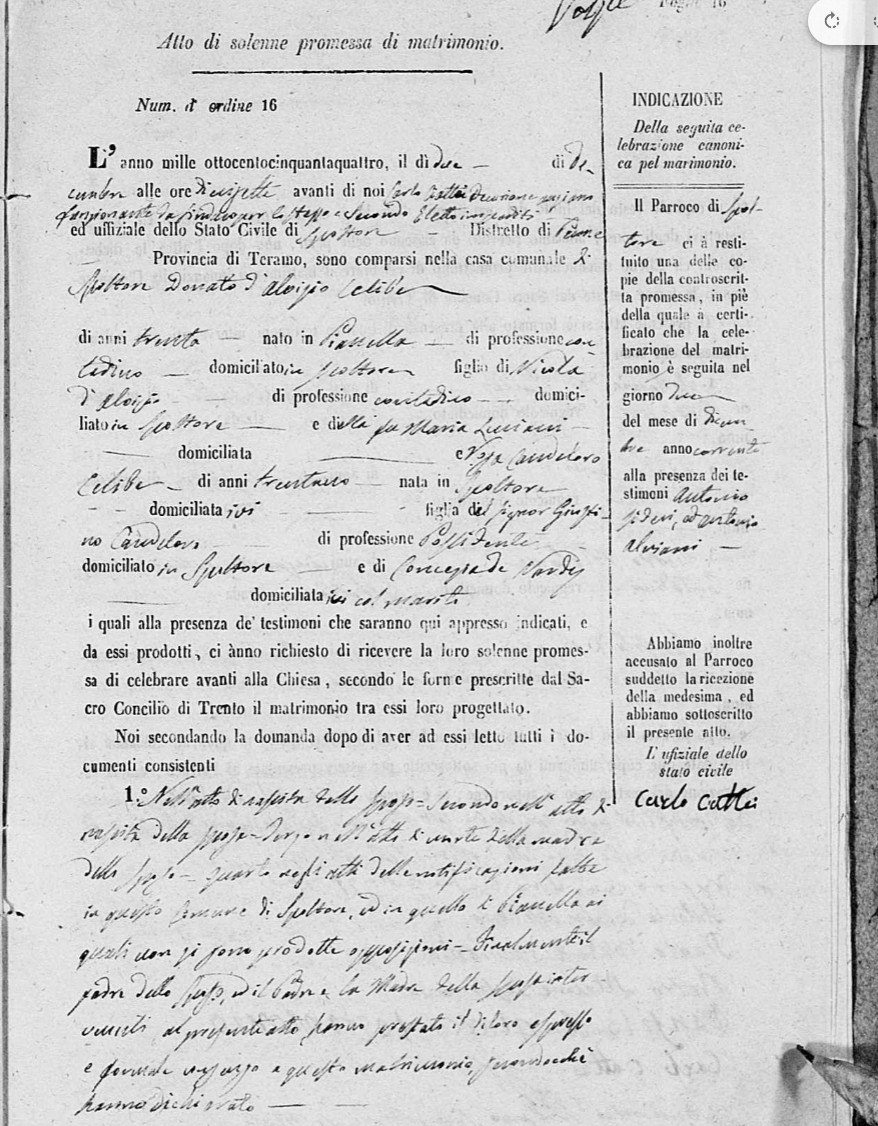 Foglio 16
Atto di solenne promessa di matrimonio.
Num. d' ordine 16
L' anno mille ottocentocinquantaquattro, il dì due di De-
cembre alle ore diecisette avanti di noi Carlo Cattei Decurione anziano
funzionante da Sindaco per lo stesso e Secondo Eletto impediti
ed uffiziale dello Stato Civile di Spoltore Distretto di Penne
Provincia di Teramo, sono comparsi nella casa comunale di
Spoltore Donato d'Aloisio Celibe
di anni trenta nato in Pianella di professione con-
tadino domiciliato in Spoltore figlio di Nicola
d'Aloisio di professione contadino domici-
liato in Spoltore e della fu Maria Luciani
domiciliata e Rosa Candeloro
Celibe di anni trentuno nata in Spoltore
domiciliata ivi figlia del Signor Giusti-
no Candeloro di professione Possidente
domiciliato in Spoltore e di Concezia de
domiciliata ivi col marito
i quali alla presenza de' testimoni che saranno qui appresso indicati, e
da essi prodotti, ci ànno richiesto di ricevere la loro solenne promes-
sa di celebrare avanti alla Chiesa, secondo le forme prescritte dal Sa-
cro Concilio di Trento il matrimonio tra essi loro progettato.
Noi secondando la domanda dopo di aver ad essi letto tutti i do-
cumenti consistenti
1.° Nell'atto di nascita dello sposo - Secondo nell'atto di
nascita della sposa - Terzo nell'atto di morte della madre
dello sposo - quarto negli atti delle notificazioni fatte
in questo Comune di Spoltore, ed in quello di Pianella ai
quali non si sono prodotte opposizioni - Finalmente il
padre dello sposo, ed il Padre e la Madre della sposa inter
venuti al presente atto hanno prestato il di loro espresso
e formale consenso a questo matrimonio, secondocché
hanno dichiarato
INDICAZIONE
Della seguita ce-
lebrazione canoni-
ca pel marimonio.
Il Parroco di Spol-
tore ci à resti-
tuito una delle co-
pie della controscrit-
ta promessa, in piè
della quale à certi-
ficato che la cele-
brazione del matri-
monio è seguita nel
giorno due
del mese di Dicem-
bre anno corrente
alla presenza dei te-
stimoni Antonio
ed Antonio
Alviani
Abbiamo inoltre
accusato al Parroco
suddetto la ricezione
della medesima, ed
abbiamo sottoscritto
il presente atto.
L' ufiziale dello
stato civile
Carlo Cattei